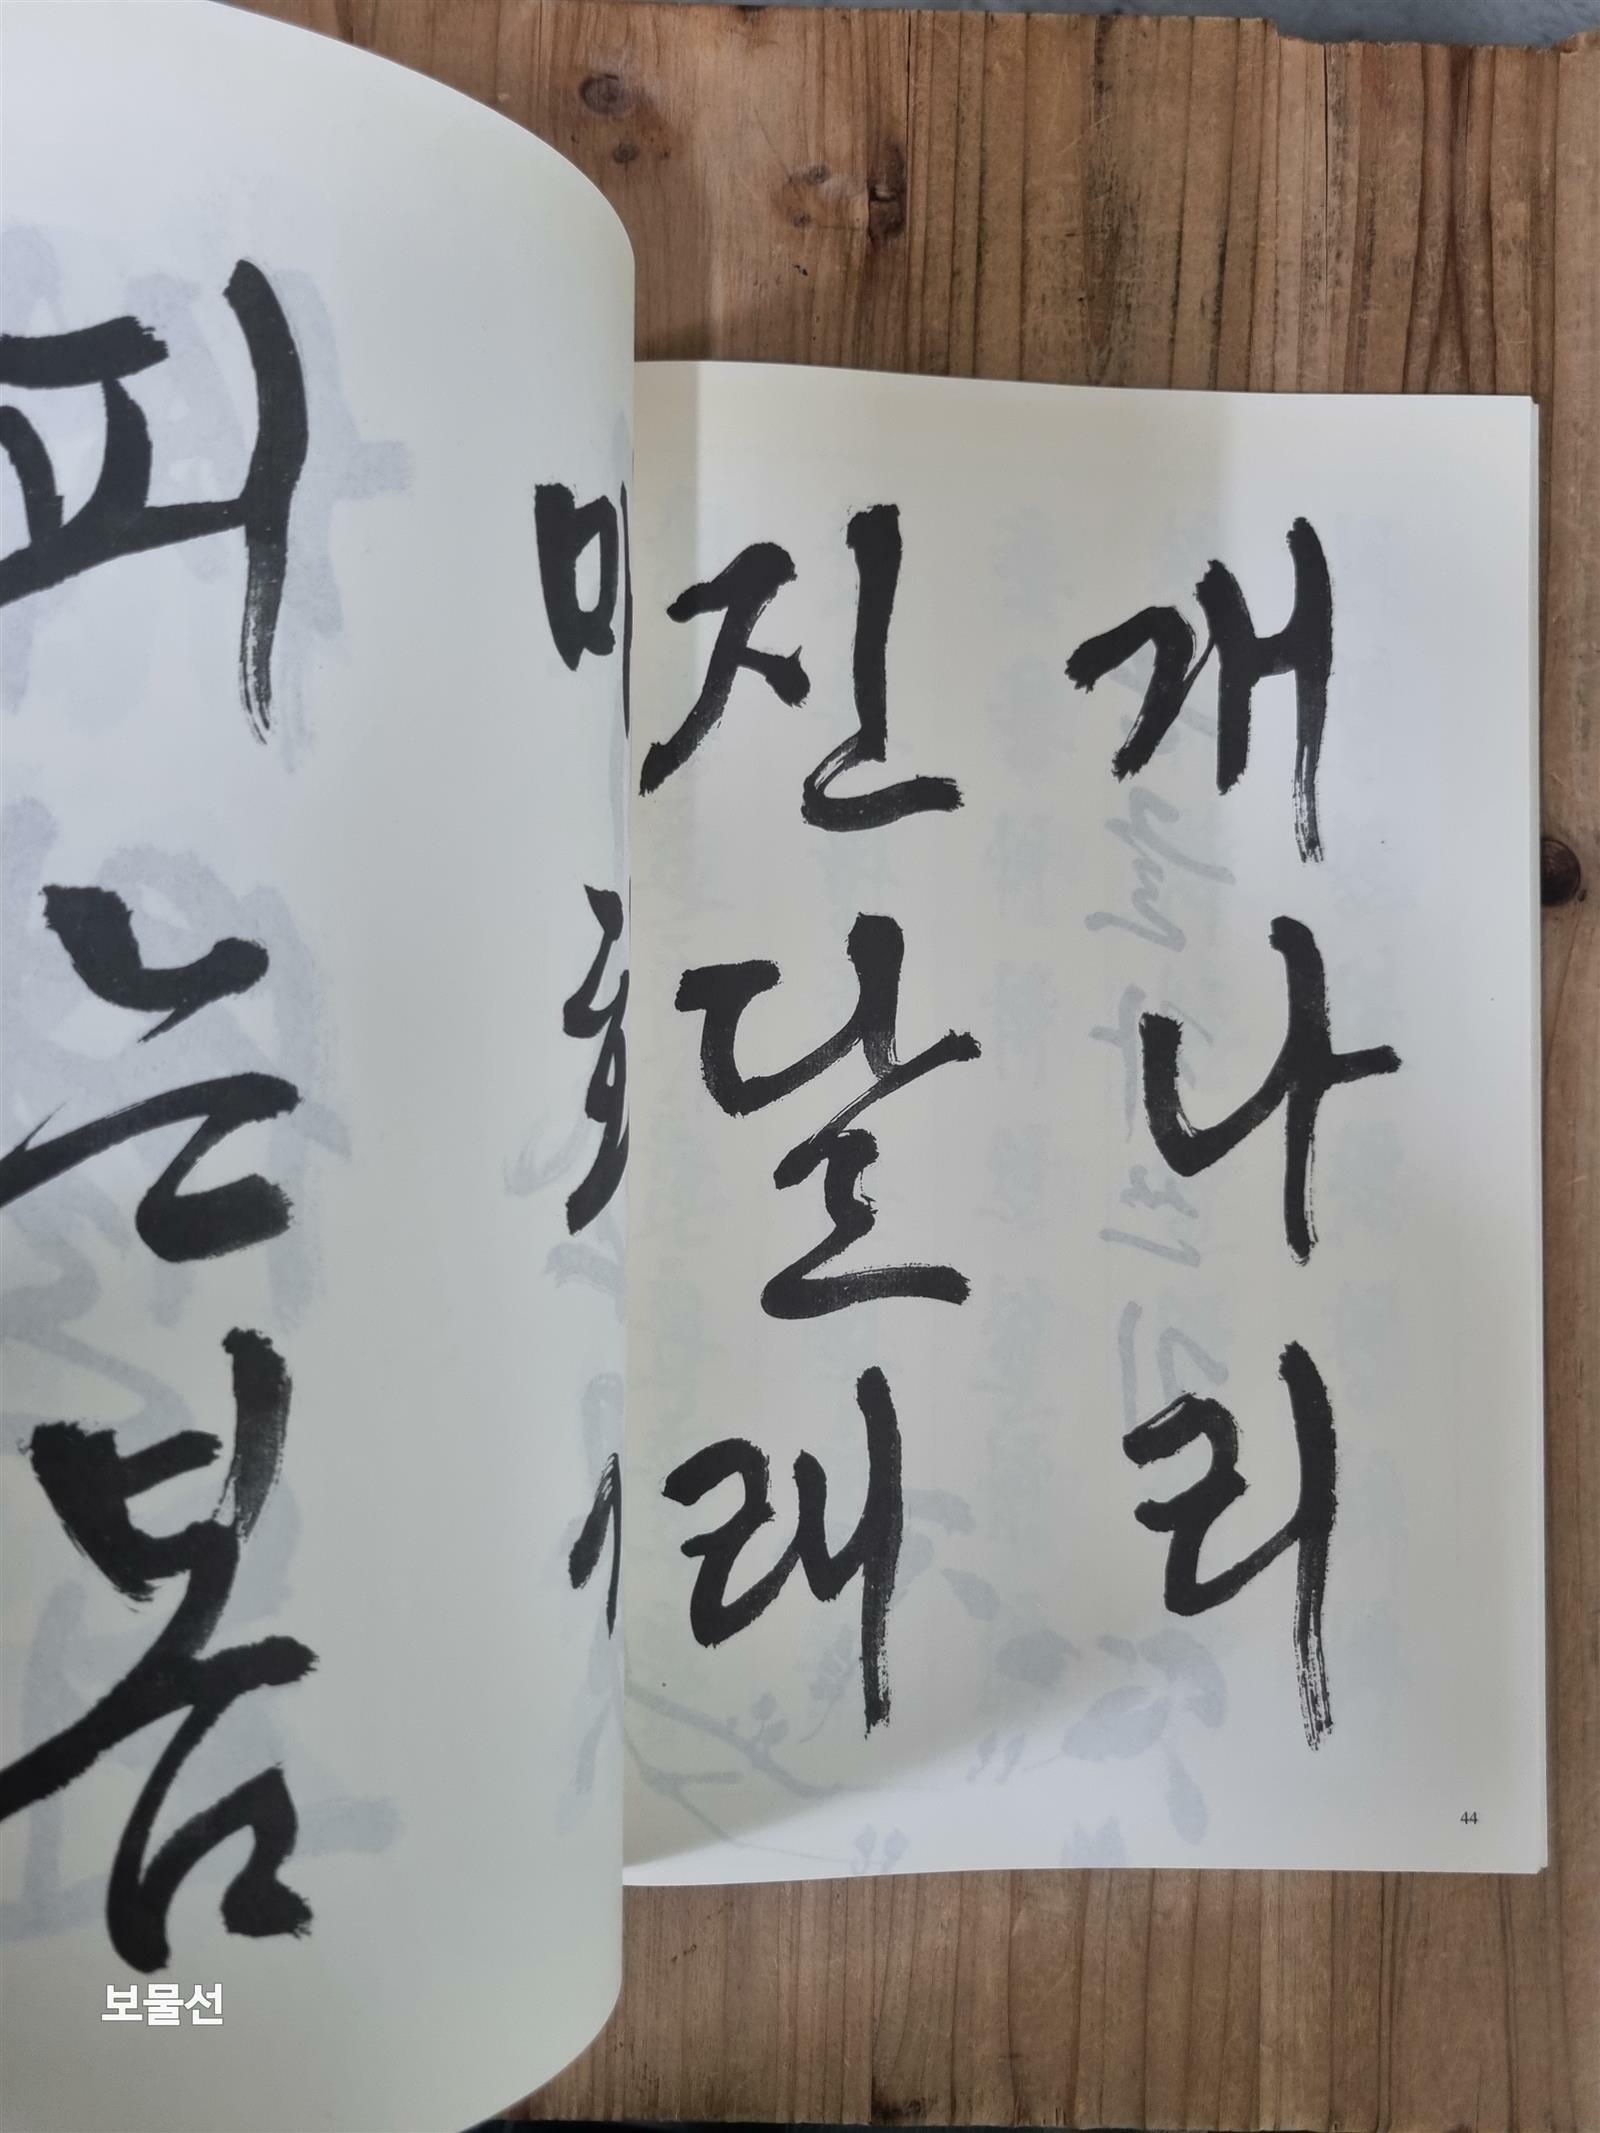 개나리
진달래
피는봄
44
보물선